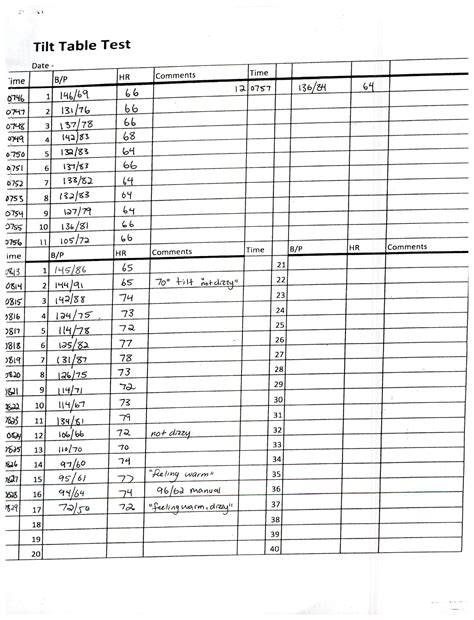 Tilt Table Test
Date -
ime B/P HR Comments Time
0746 1 146/69 66 12 0757 136/84 64
0747 2 131/76 66
0748 3 137/78 66
0749 4 142/83 68
0750 5 132/83 64
0751 6 137/83 66
0752 7 133/82 64
0753 8 132/83 64
0754 9 127/79 64
0755 10 136/81 66
0756 11 105/72 66
ime B/P HR Comments Time B/P HR Comments
0813 1 145/86 65 21
0814 2 144/91 65 70° tilt "not dizzy" 22
0815 3 142/88 74 23
0816 4 124/75 73 24
0817 5 114/78 72 25
0818 6 125/82 77 26
0819 7 131/87 78 27
0820 8 126/75 73 28
0821 9 114/71 72 29
0822 10 114/67 73 30
0823 11 134/81 79 31
0824 12 106/66 72 not dizzy 32
0825 13 110/70 70 33
0826 14 97/60 74 34
0827 15 95/61 77 "feeling warm" 35
0828 16 94/64 74 96/62 manual 36
0829 17 72/50 72 "feeling warm, dizzy" 37
18 38
19 39
20 40